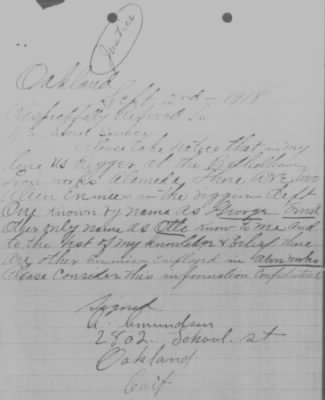 Justice
Oakland
Sept 2nd - 1918
Respectfully Refered to
U.S. Secret Service
Please take Notice that in my
line as rigger at the Bethelham
Iron works Alameda. There are two
Alien Enmies in the riggers Dept
One known by name as George Ernst
Other only name as Otto know to me and
to the best of my knowledge & Belief there
are other Enmies Employed in above works
Please Consider this information Confidential
Signed
A. Amundsen
2802. School. st
Oakland
Calif